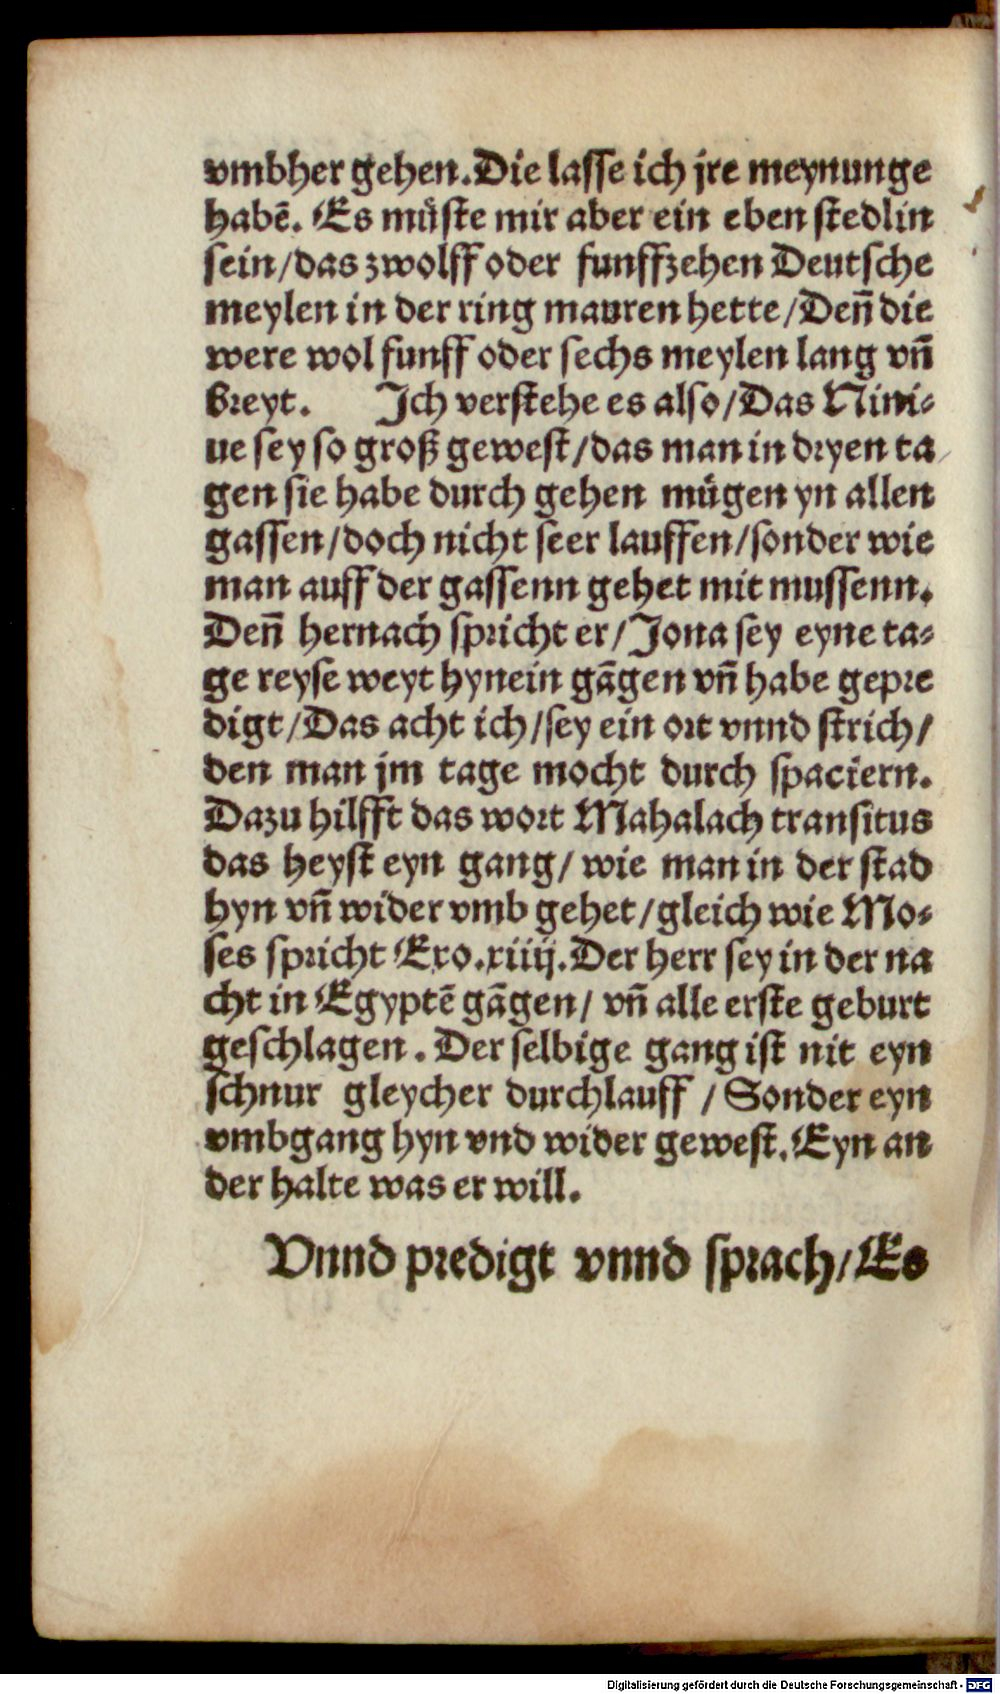 vmbher gehen. Die lasse ich jre meynunge
habē. Es muͤste mir aber ein eben stedlin
sein/das zwolff oder funffzehen Deutsche
meylen in der ring mauren hette/Deñ die
were wol funff oder sechs meylen lang vñ
breyt. Ich verstehe es also/Das Nini⸗
ue sey so groß gewest/das man in dryen ta
gen sie habe durch gehen muͤgen yn allen
gassen/doch nicht seer lauffen/sonder wie
man auff der gassenn gehet mit mussenn.
Deñ hernach spricht er/Jona sey eyne ta⸗
ge reyse weyt hynein gāgen vñ habe gepre
digt/Das acht ich/sey ein ort vnnd strich/
den man jm tage mocht durch spaciern.
Dazu hilfft das wort Mahalach transitus
das heyst eyn gang/ wie man in der stad
hyn vñ wider vmb gehet/gleich wie Mo⸗
ses spricht Exo.xiiij. Der herr sey in der na
cht in Egyptē gāgen/ vñ alle erste geburt
geschlagen. Der selbige gang ist nit eyn
schnur gleycher durchlauff / Sonder eyn
vmbgang hyn vnd wider gewest. Eyn an
der halte was er will.
Vnnd predigt vnnd sprach/Es
Digitalisierung gefördert durch die Deutsche Forschungsgemeinschaft - DFG